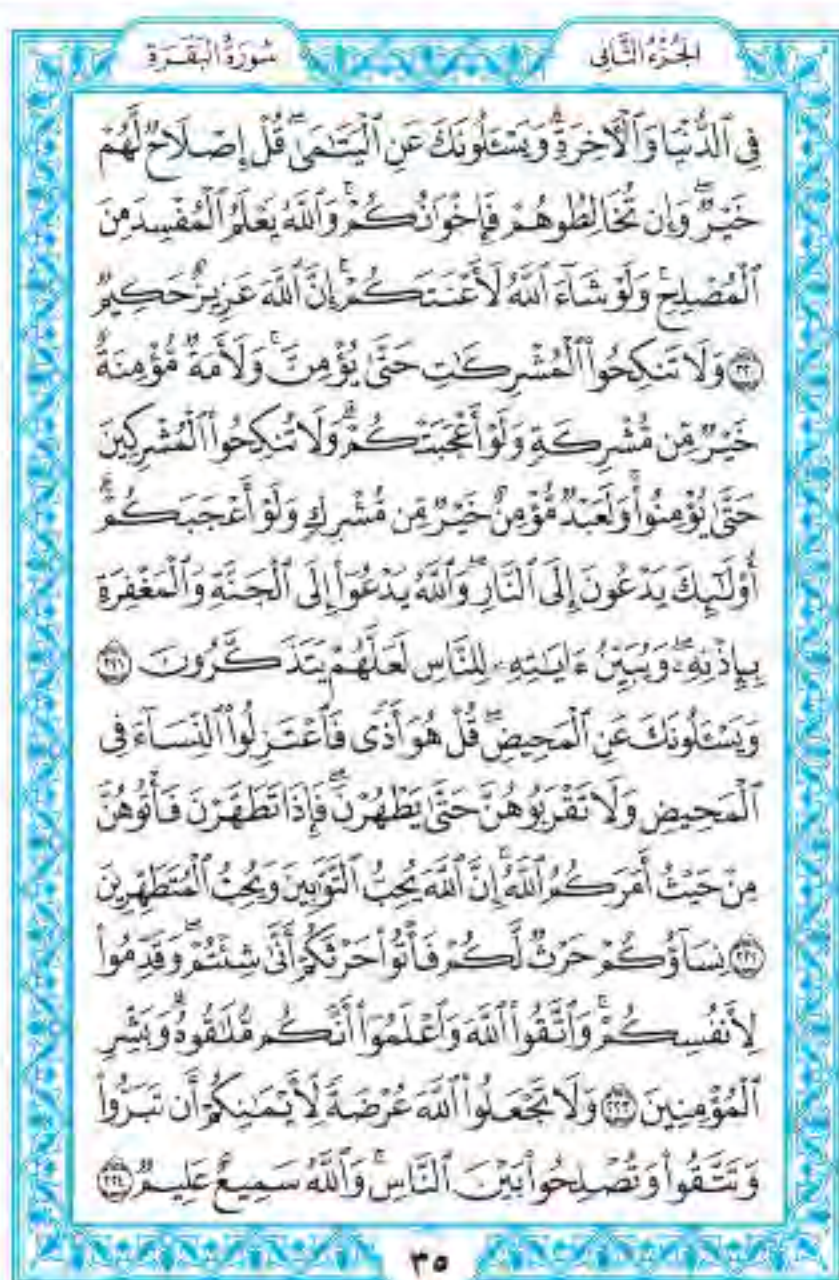 الجُزْءُ الثَّانِي
سُورَةُ البَقَرَةِ
فِى ٱلدُّنْيَا وَٱلْأَخِرَةِۗ وَيَسْـَٔلُونَكَ عَنِ ٱلْيَتَـٰمَىٰۖ قُلْ إِصْلَاحٌ لَّهُمْ
خَيْرٌۖ وَإِن تُخَالِطُوهُمْ فَإِخْوَٰنُكُمْۚ وَٱللَّهُ يَعْلَمُ ٱلْمُفْسِدَ مِنَ
ٱلْمُصْلِحِۚ وَلَوْ شَآءَ ٱللَّهُ لَأَعْنَتَكُمْۚ إِنَّ ٱللَّهَ عَزِيزٌ حَكِيمٌ
﴿٢٢٠﴾ وَلَا تَنكِحُوا۟ ٱلْمُشْرِكَـٰتِ حَتَّىٰ يُؤْمِنَّۚ وَلَأَمَةٌ مُّؤْمِنَةٌ
خَيْرٌ مِّن مُّشْرِكَةٍ وَلَوْ أَعْجَبَتْكُمْۗ وَلَا تُنكِحُوا۟ ٱلْمُشْرِكِينَ
حَتَّىٰ يُؤْمِنُوا۟ۚ وَلَعَبْدٌ مُّؤْمِنٌ خَيْرٌ مِّن مُّشْرِكٍ وَلَوْ أَعْجَبَكُمْۗ
أُو۟لَـٰٓئِكَ يَدْعُونَ إِلَى ٱلنَّارِۖ وَٱللَّهُ يَدْعُوٓا۟ إِلَى ٱلْجَنَّةِ وَٱلْمَغْفِرَةِ
بِإِذْنِهِۦۖ وَيُبَيِّنُ ءَايَـٰتِهِۦ لِلنَّاسِ لَعَلَّهُمْ يَتَذَكَّرُونَ ﴿٢٢١﴾
وَيَسْـَٔلُونَكَ عَنِ ٱلْمَحِيضِۖ قُلْ هُوَ أَذًى فَٱعْتَزِلُوا۟ ٱلنِّسَآءَ فِى
ٱلْمَحِيضِ وَلَا تَقْرَبُوهُنَّ حَتَّىٰ يَطْهُرْنَۖ فَإِذَا تَطَهَّرْنَ فَأْتُوهُنَّ
مِنْ حَيْثُ أَمَرَكُمُ ٱللَّهُۚ إِنَّ ٱللَّهَ يُحِبُّ ٱلتَّوَّٰبِينَ وَيُحِبُّ ٱلْمُتَطَهِّرِينَ
﴿٢٢٢﴾ نِسَآؤُكُمْ حَرْثٌ لَّكُمْ فَأْتُوا۟ حَرْثَكُمْ أَنَّىٰ شِئْتُمْۖ وَقَدِّمُوا۟
لِأَنفُسِكُمْۚ وَٱتَّقُوا۟ ٱللَّهَ وَٱعْلَمُوٓا۟ أَنَّكُم مُّلَـٰقُوهُۗ وَبَشِّرِ
ٱلْمُؤْمِنِينَ ﴿٢٢٣﴾ وَلَا تَجْعَلُوا۟ ٱللَّهَ عُرْضَةً لِّأَيْمَـٰنِكُمْ أَن تَبَرُّوا۟
وَتَتَّقُوا۟ وَتُصْلِحُوا۟ بَيْنَ ٱلنَّاسِۚ وَٱللَّهُ سَمِيعٌ عَلِيمٌ ﴿٢٢٤﴾
٣٥